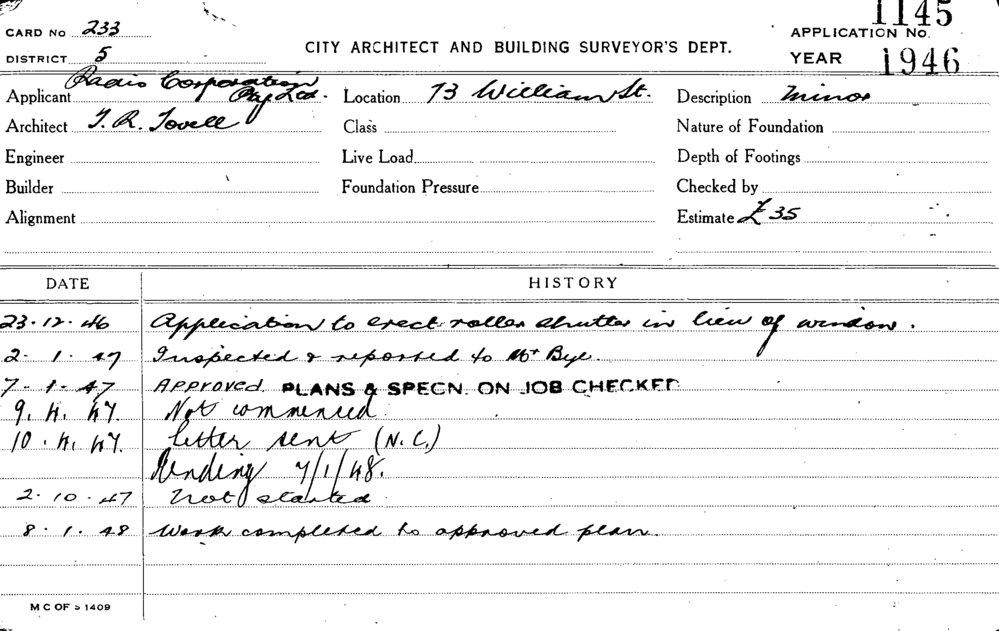 CARD No 233
DISTRICT 5
CITY ARCHITECT AND BUILDING SURVEYOR'S DEPT.
1145
APPLICATION No.
YEAR 1946
Applicant Radio Corporation Pty Ltd. Location 73 William St. Description Minor
Architect T. R. Tovell Class Nature of Foundation
Engineer Live Load Depth of Footings
Builder Foundation Pressure Checked by
Alignment Estimate £35
DATE HISTORY
23·12·46 Application to erect roller shutter in lieu of window.
2·1·47 Inspected & reported to Mr Bye.
7-1-47 APPROVED. PLANS & SPECN. ON JOB CHECKED
9. 4. 47. Not commenced
10. 4. 47. Letter sent (N.C.)
Pending 7/1/48.
2·10·47 Not started
8·1·48 Work completed to approved plan.
M C OF 1409